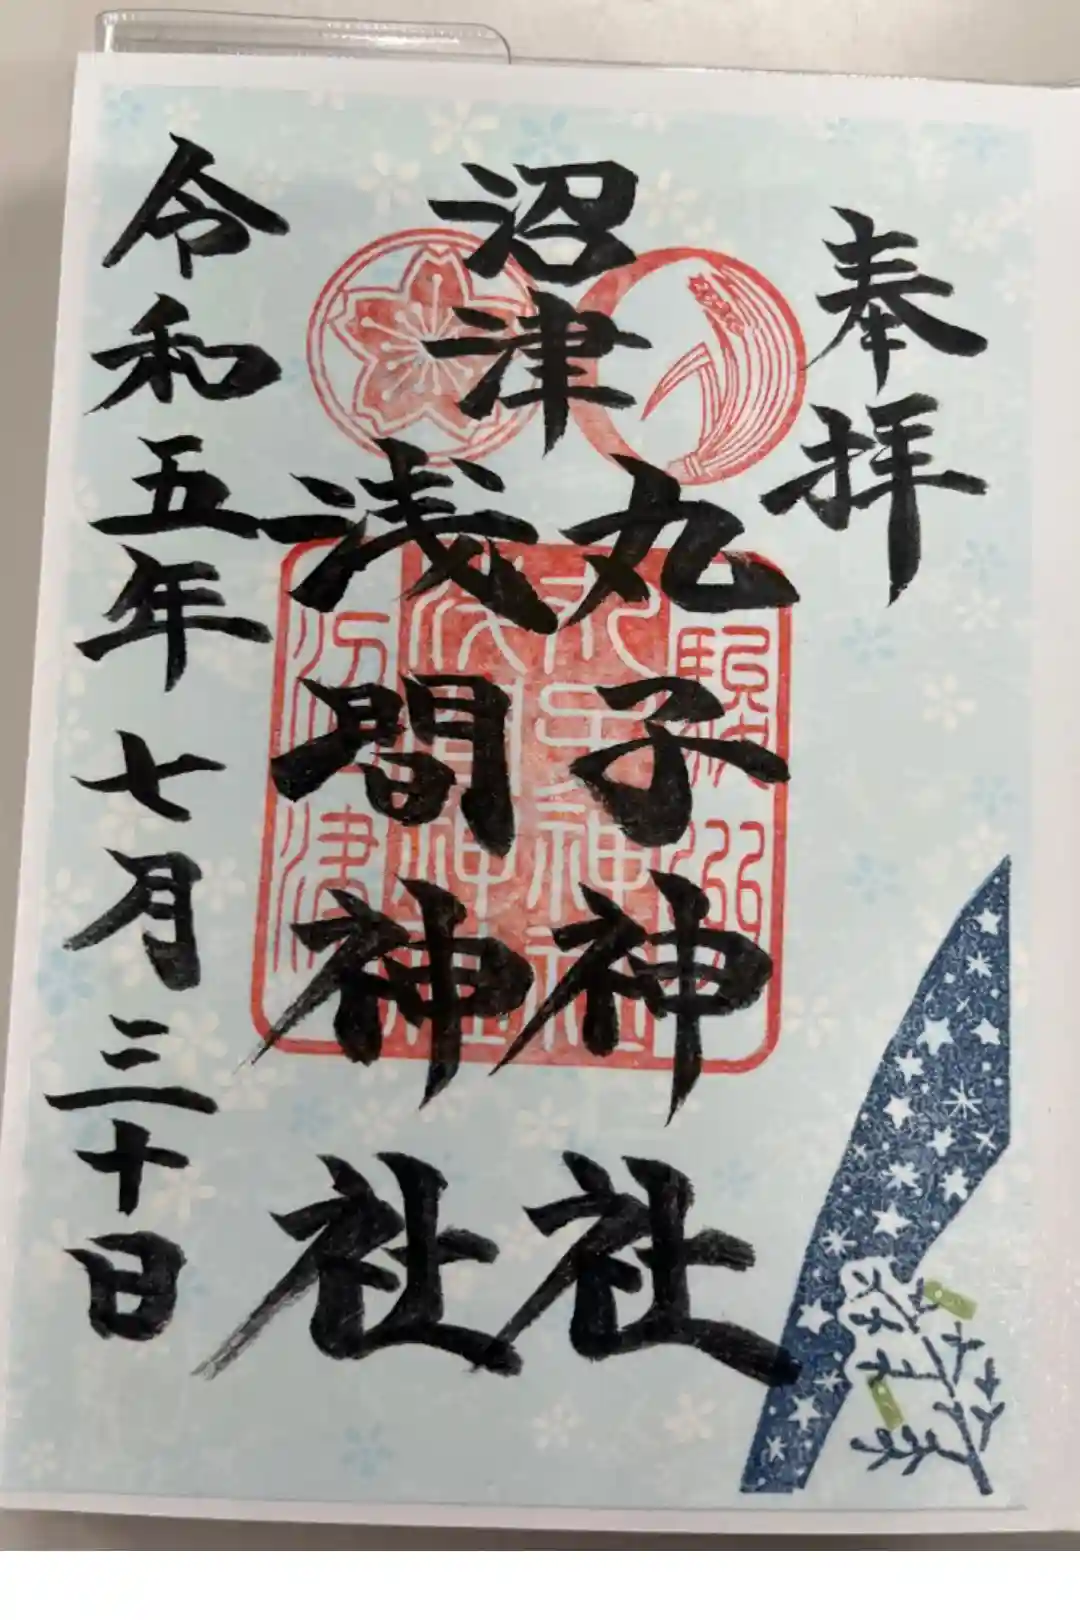 奉拝
沼津
丸子神社
浅間神社
令和五年七月三十日
駿州
丸子神社
浅間神社
沼津